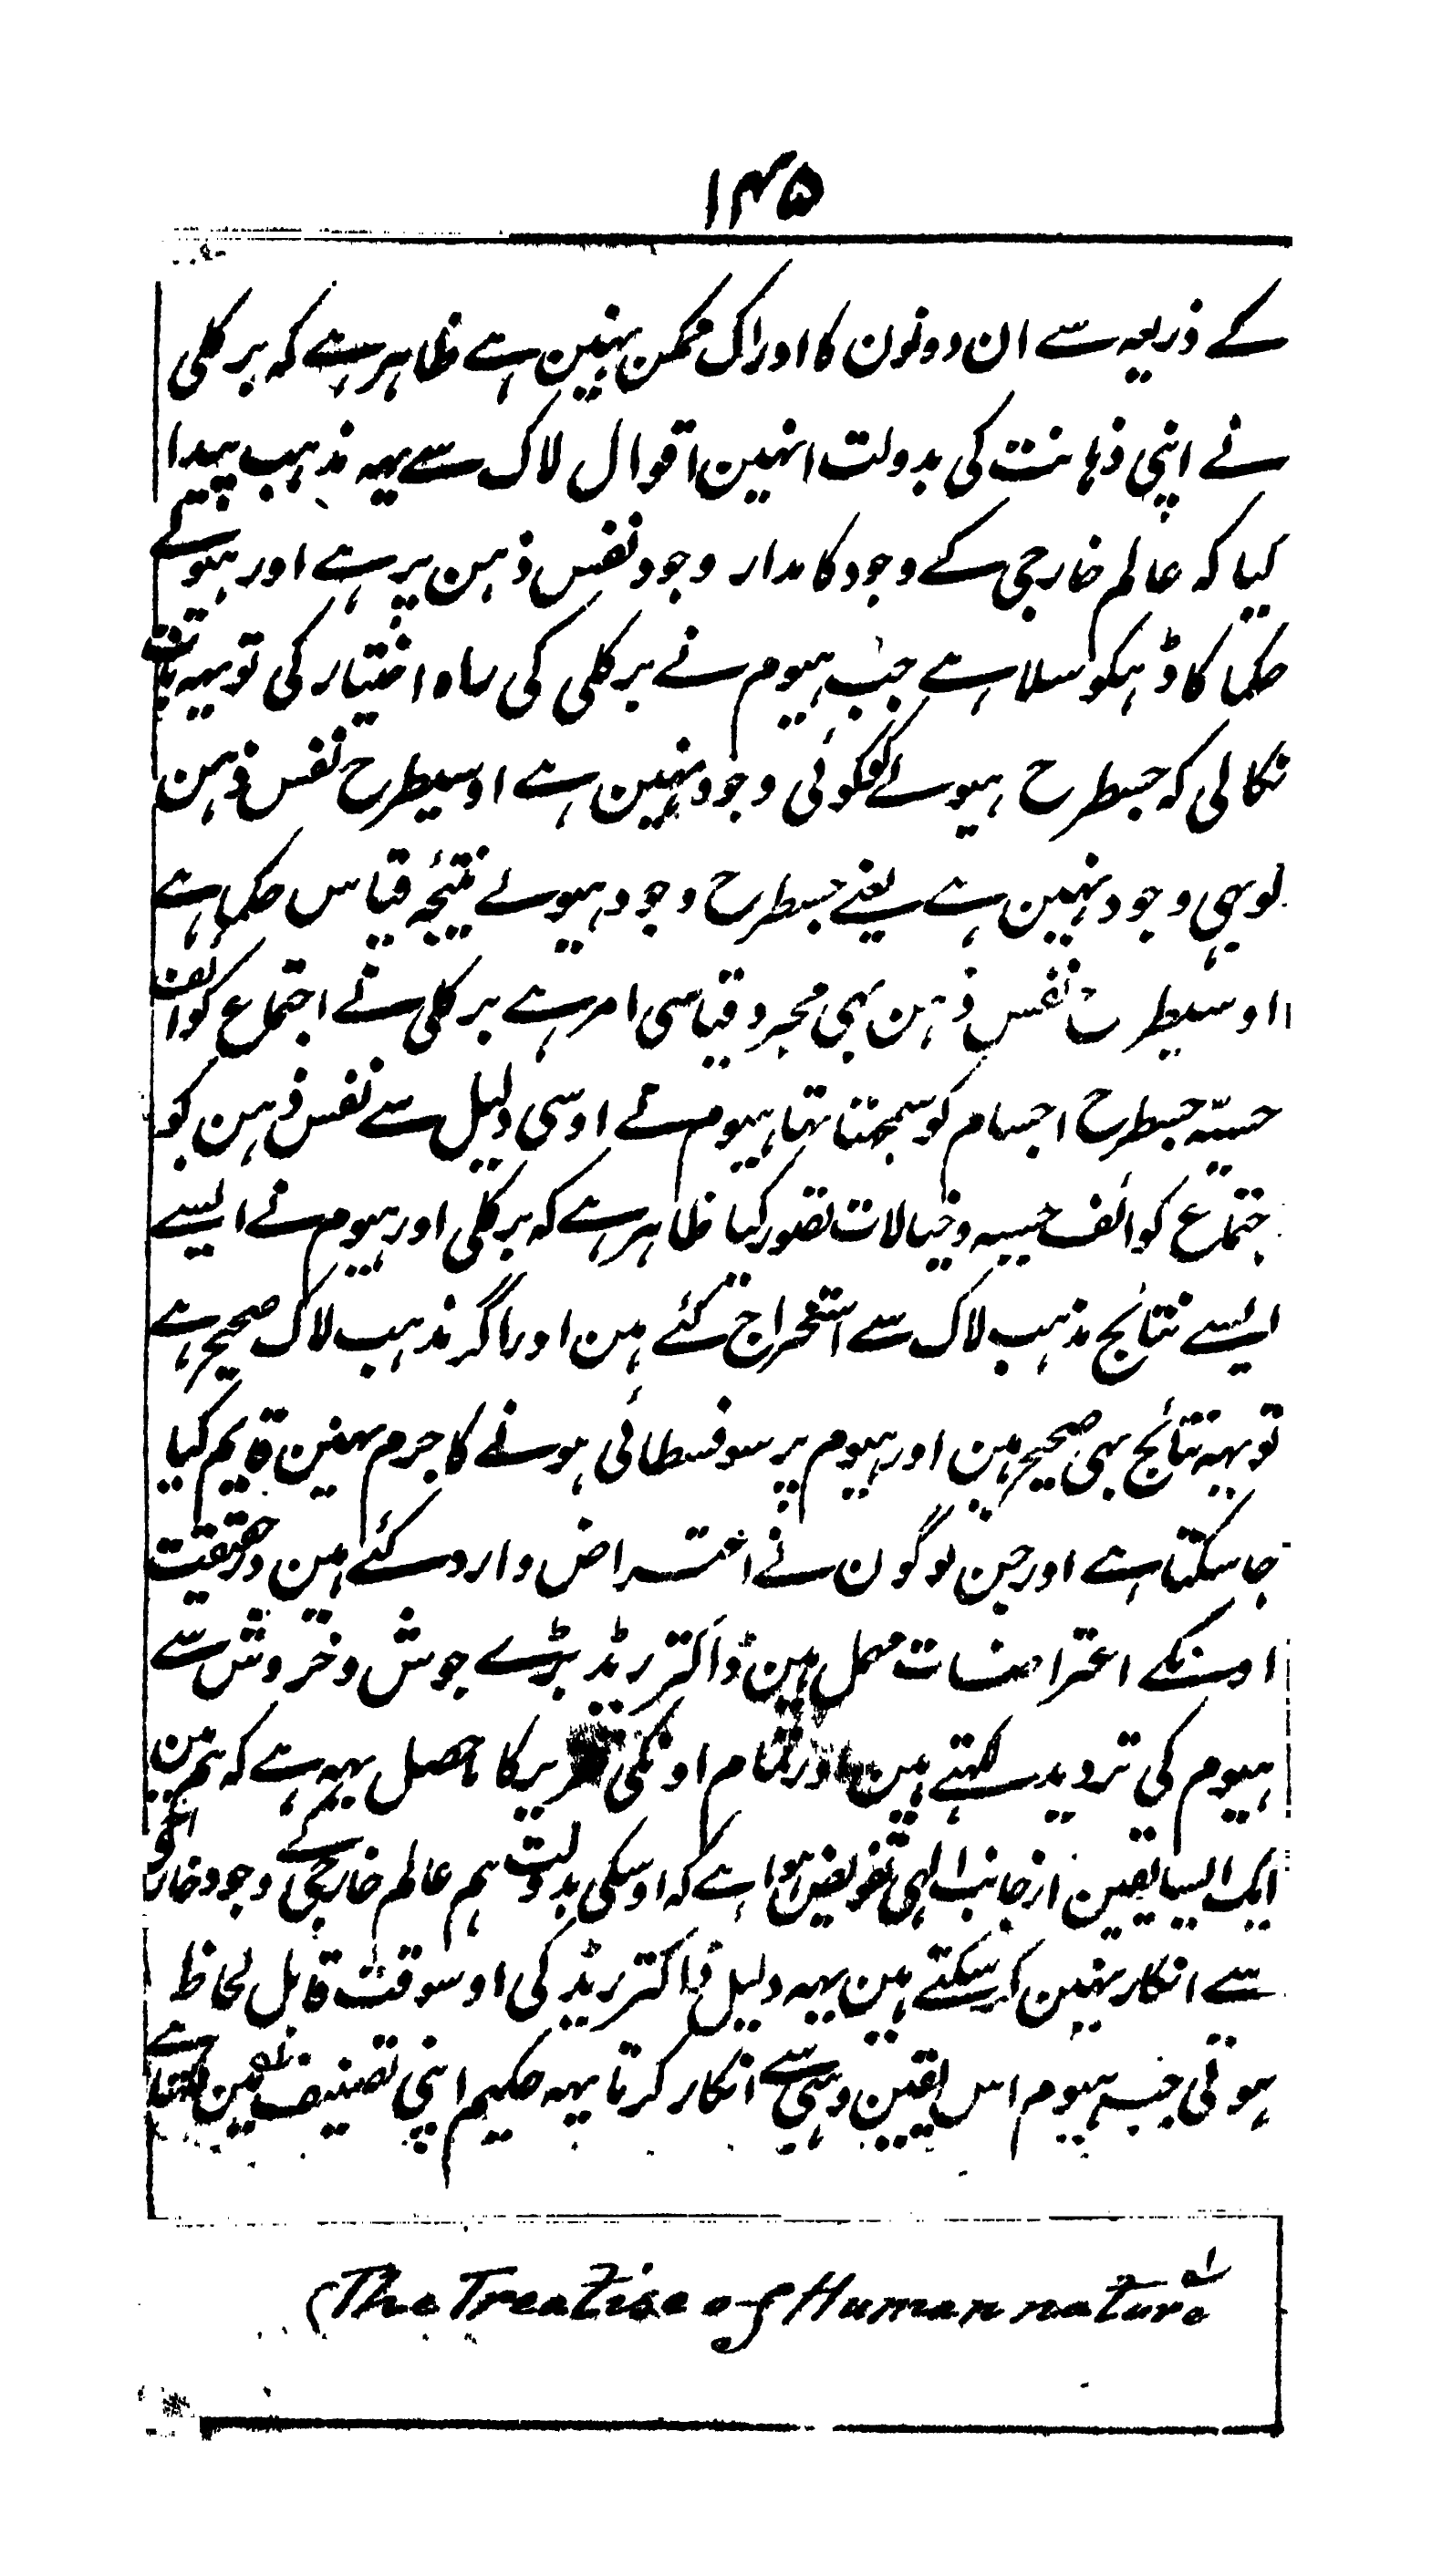 ۱۴۵
کے ذریعہ سے ان دونون کا ادراک ممکن نہین ہے ظاہر ہے کہ برکلی
نے اپنی ذہانت کی بدولت انہین اقوال لاک سے یہہ مذہب پیدا
کیا کہ عالم خارجی کے وجود کا مدار وجود نفس ذہن پر ہے اور ہیولے
حکما کا ڈہکوسلا ہے جب ہیوم نے برکلی کی راہ اختیار کی تو یہہ بات
نکالی کہ جسطرح ہیولے کو کوئی وجود نہین ہے اوسیطرح نفس ذہن
کو بہی وجود نہین ہے یعنے جسطرح وجود ہیولے نتیجۂ قیاس حکما ہے
اوسیطرح نفس ذہن بہی مجرد قیاسی امر ہے برکلی نے اجتماع کوائف
حسیّہ جسطرح اجسام کو سمجہتا تہا ہیوم نے اوسی دلیل سے نفس ذہن کو
جتماع کوائف حسیہ و خیالات تصور کیا ظاہر ہے کہ برکلی اور ہیوم نے ایسے
ایسے نتائج مذہب لاک سے استخراج کئے ہین اور اگر مذہب لاک صحیح ہے
تو یہہ نتائج بہی صحیح ہین اور ہیوم پر سوفسطائی ہونے کا جرم نہین قایم کیا
جا سکتا ہے اور جن لوگون نے اعتراض وارد کئے ہین درحقیقت
اونکے اعتراضات مہمل ہین ڈاکتر ریڈ بڑے جوش و خروش سے
ہیوم کی تردید لکہتے ہین اور تمام اونکی تقریر کا ماحصل یہہ ہے کہ ہم مین
ایک ایسا یقین از جانب الہی تفویض ہوا ہے کہ اوسکی بدولت ہم عالم خارجی کے وجود خارجی
سے انکار نہین کر سکتے ہین یہہ دلیل ڈاکتر ریڈ کی اوسوقت قابل لحاظ
ہوتی جب ہیوم اس یقین وہبی سے انکار کرتا یہہ حکیم اپنی تصنیف مین لکہتا ہے
۱؎ The Treatise of Human nature